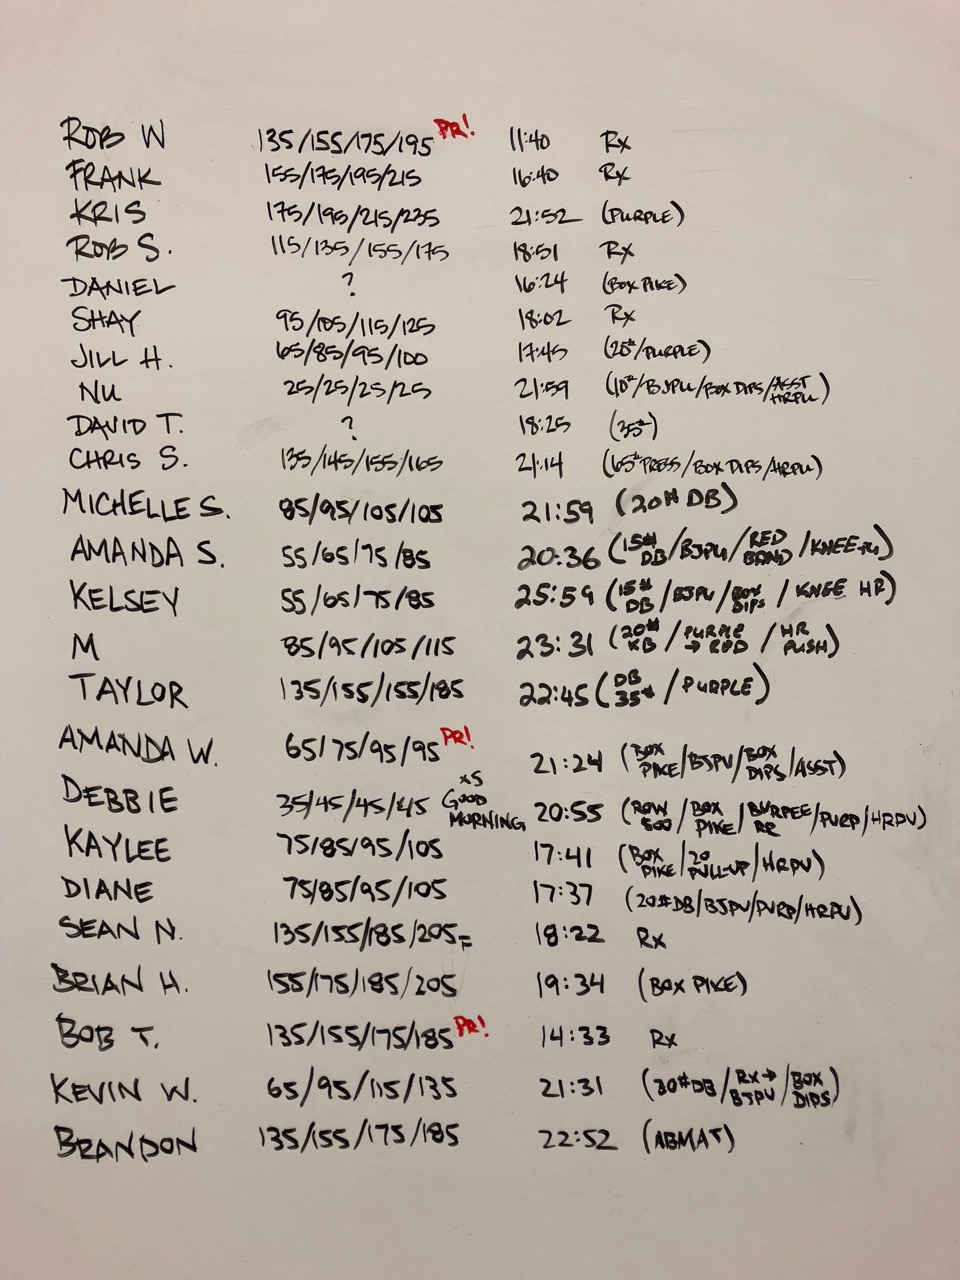 ROB W 135/155/175/195 PR! 11:40 Rx
FRANK 155/175/195/215 16:40 Rx
KRIS 175/195/215/235 21:52 (PURPLE)
ROB S. 115/135/155/175 18:51 Rx
DANIEL ? 16:24 (BOX PIKE)
SHAY 95/105/115/125 18:02 Rx
JILL H. 65/85/95/100 17:45 (25#/PURPLE)
NU 25/25/25/25 21:59 (10#/BJPU/BOX DIPS/ASST HRPU)
DAVID T. ? 18:25 (35#)
CHRIS S. 135/145/155/165 21:14 (65# PRESS/BOX DIPS/HRPU)
MICHELLE S. 85/95/105/105 21:59 (20# DB)
AMANDA S. 55/65/75/85 20:36 (15# DB/BJPU/RED BAND/KNEE-PU)
KELSEY 55/65/75/85 25:59 (15# DB/BJPU/BOX DIPS/KNEE HR)
M 85/95/105/115 23:31 (20# KB/PURPLE → RED/HR PUSH)
TAYLOR 135/155/155/185 22:45 (DB 35#/PURPLE)
AMANDA W. 65/75/95/95 PR! 21:24 (BOX PIKE/BJPU/BOX DIPS/ASST)
DEBBIE 35/45/45/45 x5 GOOD MORNING 20:55 (ROW 500/BOX PIKE/BURPEE RR/PURP/HRPU)
KAYLEE 75/85/95/105 17:41 (BOX PIKE/20 PULL-UP/HRPU)
DIANE 75/85/95/105 17:37 (20# DB/BJPU/PURP/HRPU)
SEAN N. 135/155/185/205= 18:22 Rx
BRIAN H. 155/175/185/205 19:34 (BOX PIKE)
BOB T. 135/155/175/185 PR! 14:33 Rx
KEVIN W. 65/95/115/135 21:31 (30# DB/RX → BJPU/BOX DIPS)
BRANDON 135/155/175/185 22:52 (ABMAT)